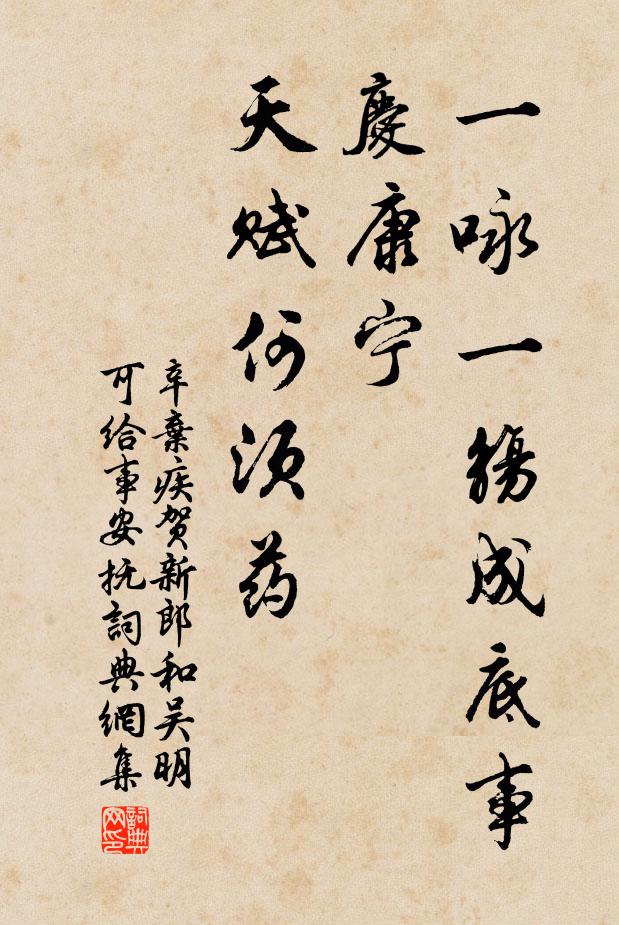 一咏一觴成底事
慶康宁
天赋何须药
辛棄疾贺新郎和吴明
可给事安抚詞典網集
詞典网印